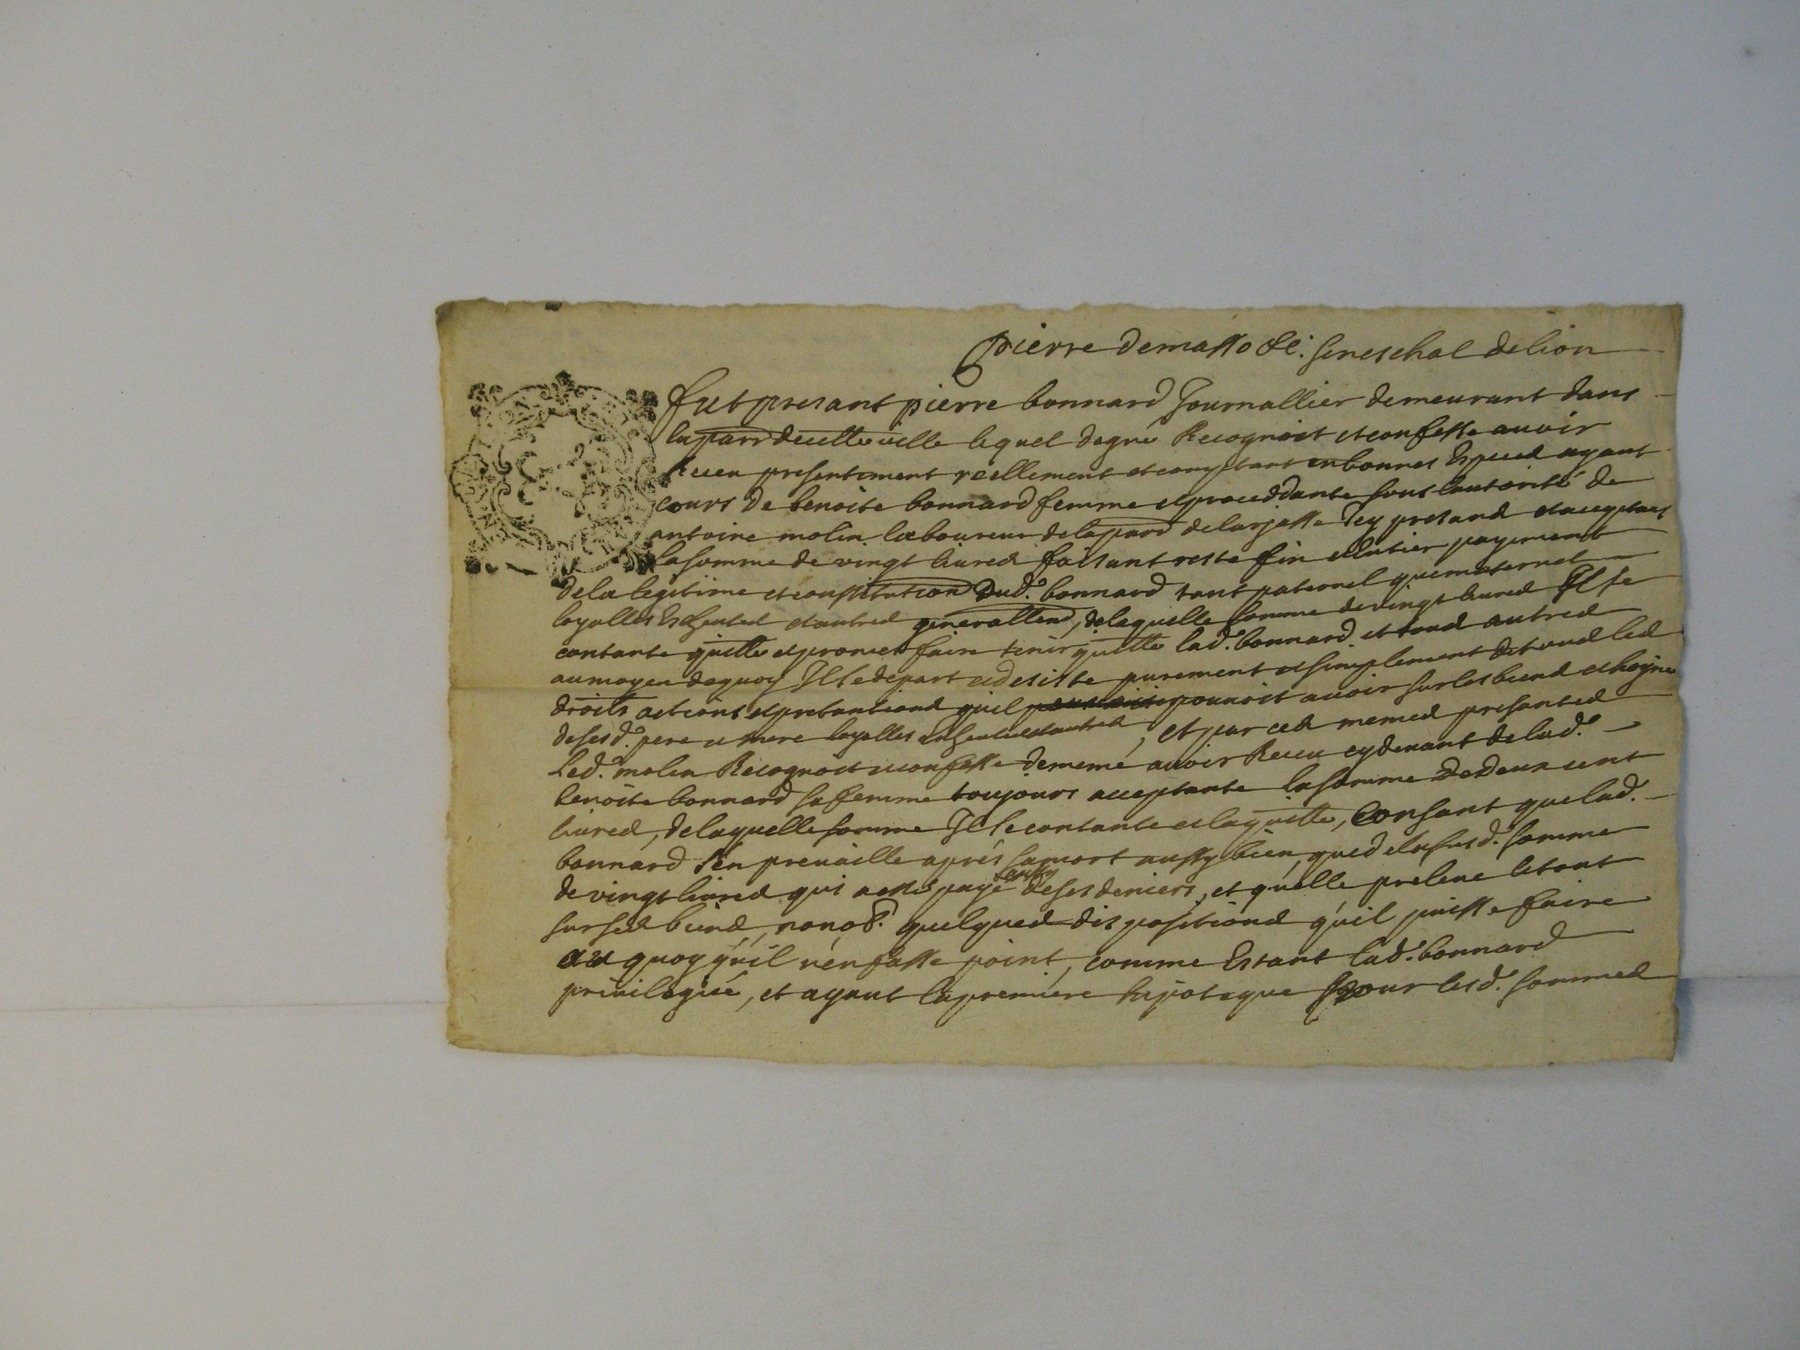 pierre demasso &c. seneschal de lion
fut presant pierre bonnard Journallier demeurant dans
la parr de cette ville lequel de gré Recognoit et confesse avoir
Receu presentement reellement et comptant en bonnes Especes ayant
cours de benoite bonnard femme et proceddante sous l'autorité de
antoine molin laboureur de la parr de larjasse Icy presand et acceptant
la somme de vingt livres faisant reste fin et entier payement
de la legitime et constitution dud. bonnard tant paternel que maternel
loyalles Escheutes et autres generallem, de laquelle somme de vingt livres Il se
contante quitte et promet faire tenir quitte lad. bonnard et tous autres
au moyen de quoy Il se depart et desiste purement et simplement de tous les
droits actions et pretantions qu'il pouroit avoir sur les biens et hoyrie
de sesd. pere et mere loyalles escheutes et autres, et par ces memes presantes
Led. molin Recognoit et confesse de meme avoir Receu cy devant de lad.
benoite bonnard sa femme toujours acceptante la somme de deux cent
livres, de laquelle somme Il se contante et la quitte, Consant que lad.
bonnard s'en prevaille aprés sa mort aussy bien que de la susd. somme
de vingt livres qui a esté payé de ses deniers, et qu'elle preleve le tout
sur ses biens, nonob. quelques dispositions qu'il puisse faire
au quoy qu'il n'en fasse point, comme Estant lad. bonnard
privilegiée, et ayant la premiere hipoteque pour lesd. sommes